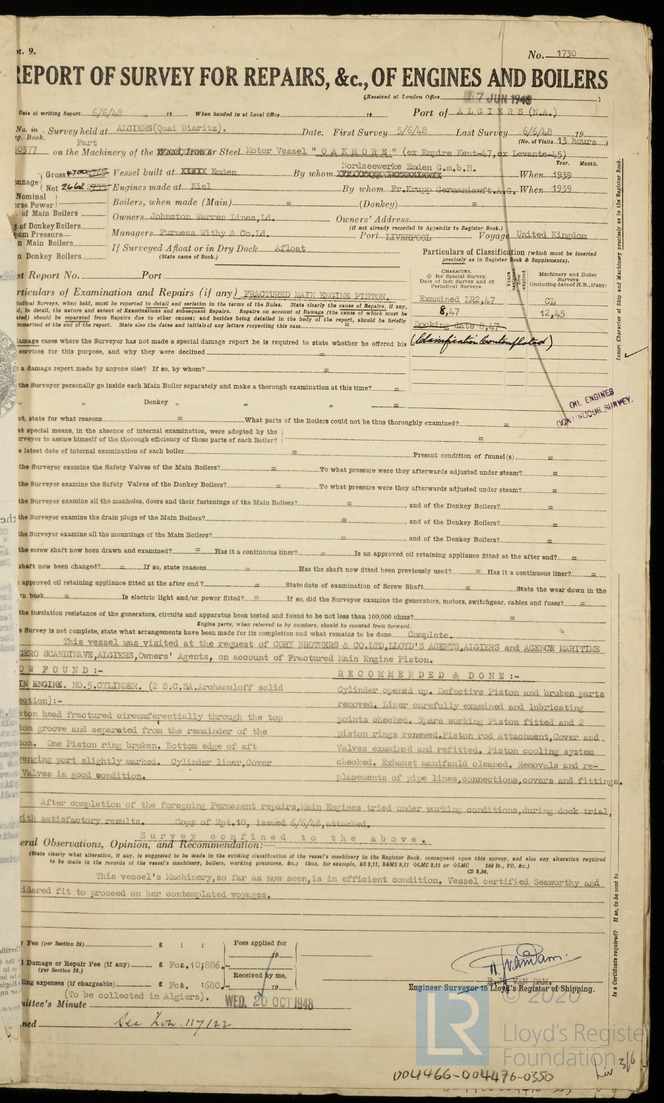 pt. 9.
No. 1730
REPORT OF SURVEY FOR REPAIRS, &c., OF ENGINES AND BOILERS
(Received at London Office 17 JUN 1948 )
Date of writing Report 6/6/48 19 When handed in at Local Office 19 Port of ALGIERS (N.A.)
No. in Survey held at ALGIERS(Quai Biaritz). Date. First Survey 5/6/48 Last Survey 6/6/48 19
g. Book. (No. of Visits 13 hours )
Part
90377 on the Machinery of the Wood, Iron or Steel Motor Vessel " OAKMORE " (ex Empire Kent-47, ex Levante-45)
Nordseewerke Emden G.m.b.H. Year. Month.
Gross 4700 Vessel built at Emden By whom When 1939
Net 2622 Engines made at Kiel By whom Fr.Krupp Germaniawft.A.G. When 1939
Nominal Boilers, when made (Main) = (Donkey) =
of Main Boilers Owners Johnston Warren Lines,Ld. Owners' Address
of Donkey Boilers (if not already recorded in Appendix to Register Book.)
Managers Furness Withy & Co.Ld. Port LIVERPOOL Voyage United Kingdom
n Main Boilers If Surveyed Afloat or in Dry Dock Afloat
n Donkey Boilers (State name of Dock.)
Particulars of Classification (which must be inserted
precisely as in Register Book & Supplements).
CHARACTER.
for Special Survey.
Date of last Survey and of
Periodical Surveys
Machinery and Boiler
Surveys
(including dates of N.B., if any)
Examined LR2,47 CL
8,47 12,45
Docking date 8,47
(Classification Contemplated)
Insert Character of Ship and Machinery precisely as in the Register Book.
OIL ENGINES
CONTINUOUS SURVEY.
st Report No. Port
rticulars of Examination and Repairs (if any) FRACTURED MAIN ENGINE PISTON.
amage cases where the Surveyor has not made a special damage report he is required to state whether he offered his
services for this purpose, and why they were declined =
a damage report made by anyone else? If so, by whom? =
the Surveyor personally go inside each Main Boiler separately and make a thorough examination at this time? =
" " Donkey " " " =
ot, state for what reasons = What parts of the Boilers could not be thus thoroughly examined? =
at special means, in the absence of internal examination, were adopted by the
urveyor to assure himself of the thorough efficiency of those parts of each Boiler? =
e latest date of internal examination of each boiler = Present condition of funnel(s) =
the Surveyor examine the Safety Valves of the Main Boilers? = To what pressure were they afterwards adjusted under steam? =
the Surveyor examine the Safety Valves of the Donkey Boilers? = To what pressure were they afterwards adjusted under steam? =
the Surveyor examine all the manholes, doors and their fastenings of the Main Boilers? = , and of the Donkey Boilers? =
the Surveyor examine the drain plugs of the Main Boilers? = , and of the Donkey Boilers? =
the Surveyor examine all the mountings of the Main Boilers? = , and of the Donkey Boilers? =
the screw shaft now been drawn and examined? = Has it a continuous liner? = Is an approved oil retaining appliance fitted at the after end? =
shaft now been changed? = If so, state reasons = Has the shaft now fitted been previously used? = Has it a continuous liner? =
approved oil retaining appliance fitted at the after end? = State date of examination of Screw Shaft = State the wear down in the
rn bush = Is electric light and/or power fitted? = If so, did the Surveyor examine the generators, motors, switchgear, cables and fuses? =
the insulation resistance of the generators, circuits and apparatus been tested and found to be not less than 100,000 ohms? =
Engine parts, when referred to by numbers, should be counted from forward.
e Survey is not complete, state what arrangements have been made for its completion and what remains to be done Complete.
This vessel was visited at the request of CORY BROTHERS & CO.LTD,LLOYD'S AGENTS,ALGIERS and AGENCE MARITIME
GERO SCANDINAVE,ALGIERS,Owners' Agents, on account of Fractured Main Engine Piston.
OW FOUND:-
IN ENGINE. NO.5.CYLINDER. (2 S.C.SA.Archaouloff solid
ection):-
ston head fractured circumferentially through the top
ton groove and separated from the remainder of the
ton. One Piston ring broken. Bottom edge of aft
venging port slightly marked. Cylinder liner,Cover
Valves in good condition.
RECOMMENDED & DONE:-
Cylinder opened up. Defective Piston and broken parts
removed. Liner carefully examined and lubricating
points checked. Spare working Piston fitted and 2
piston rings renewed.Piston rod attachment,Cover and
Valves examined and refitted. Piston cooling system
checked. Exhaust manifauld cleaned. Removals and re-
placements of pipe lines,connections,covers and fittings.
After completion of the foregoing Permanent repairs,Main Engines tried under working conditions,during dock trial,
ith satisfactory results. Copy of Rpt.10, issued 6/6/48,attached.
Survey confined to the above.
eral Observations, Opinion, and Recommendation:—
(State clearly what alteration, if any, is suggested to be made in the existing classification of the vessel's machinery in the Register Book, consequent upon this survey, and also any alteration required
to be made in the records of the vessel's machinery, boilers, working pressures, &c.)
This vessel's Machinery,so far as now seen,is in efficient condition. Vessel certified Seaworthy and
idered fit to proceed on her contemplated voyages.
y Fee (per Section 29) £ : :
Fees applied for
19
l Damage or Repair Fee (if any) £ Fcs.10;886.-
(per Section 29.)
Received by me,
19
lling expenses (if chargeable) £ Fcs. :680.-
(To be collected in Algiers).
WED. 20 OCT 1948
mittee's Minute
ned See Lon. 117122
Engineer Surveyor to Lloyd's Register of Shipping.
Is a Certificate required? If so, to be sent to
© 2020
LR
Lloyd's Registe
Foundation
004466-004476-0350
Liv 3/6